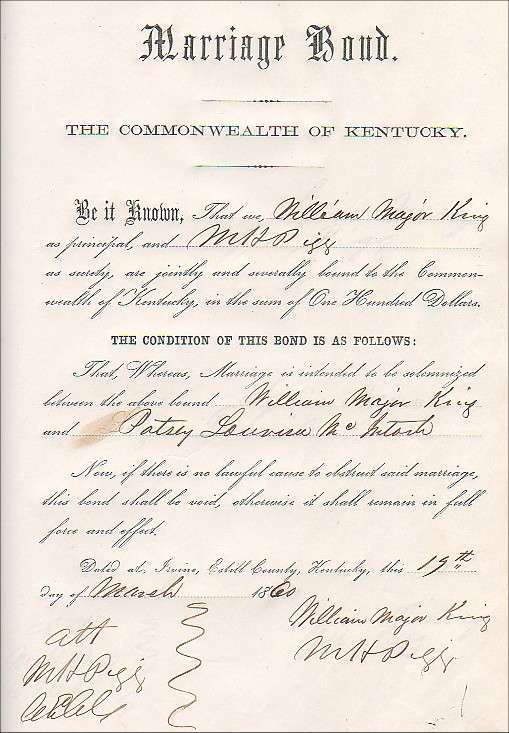 Marriage Bond.
THE COMMONWEALTH OF KENTUCKY.
Be it Known, That we, William Major King
as principal, and M H Pigg
as surety, are jointly and severally bound to the Common-
wealth of Kentucky, in the sum of One Hundred Dollars.
THE CONDITION OF THIS BOND IS AS FOLLOWS:
That, Whereas, Marriage is intended to be solemnized
between the above bound William Major King
and Patsey Louvisa Mc Intosh
Now, if there is no lawful cause to obstruct said marriage,
this bond shall be void, otherwise it shall remain in full
force and effect.
Dated at Irvine, Estill County, Kentucky, this 19th
day of March 1860
William Major King
M H Pigg
att
M H Pigg